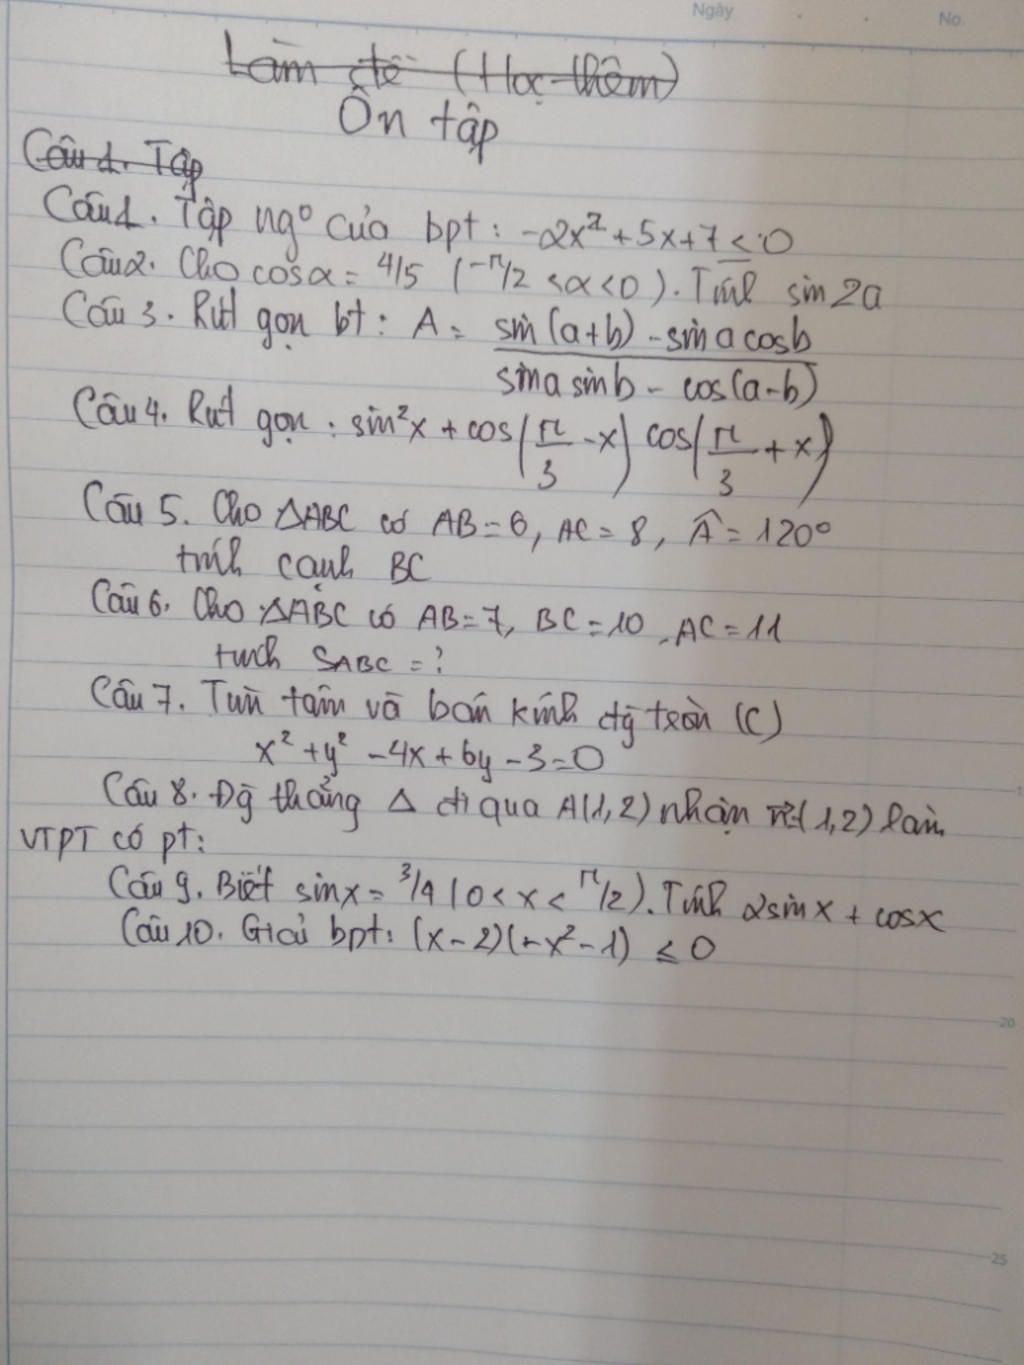 Ngày
No.
Làm đề (Học thêm)
Ôn tập
Câu 1. Tập
Câu 1. Tập ng° của bpt: -2x²+5x+7 ≤ 0
Câu 2. Cho cosα = 4/5 (-π/2 <α<0). Tính sin 2a
Câu 3. Rút gọn bt: A = sin(a+b) - sin a cos b / sina sinb - cos(a-b)
Câu 4. Rút gọn: sin²x + cos(π/3 - x) cos(π/3 + x)
Câu 5. Cho ΔABC có AB=6, AC=8, Â=120°
tính cạnh BC
Câu 6. Cho ΔABC có AB=7, BC=10, AC=11
tính SABC = ?
Câu 7. Tìm tâm và bán kính đg tròn (C)
x² + y² - 4x + 6y - 3 = 0
Câu 8. Đg thẳng Δ đi qua A(1,2) nhận n=(1,2) làm
VTPT có pt:
Câu 9. Biết sinx = 3/4 (0 < x < π/2). Tính 2sinx + cosx
Câu 10. Giải bpt: (x-2)(-x²-1) ≤ 0
20
25